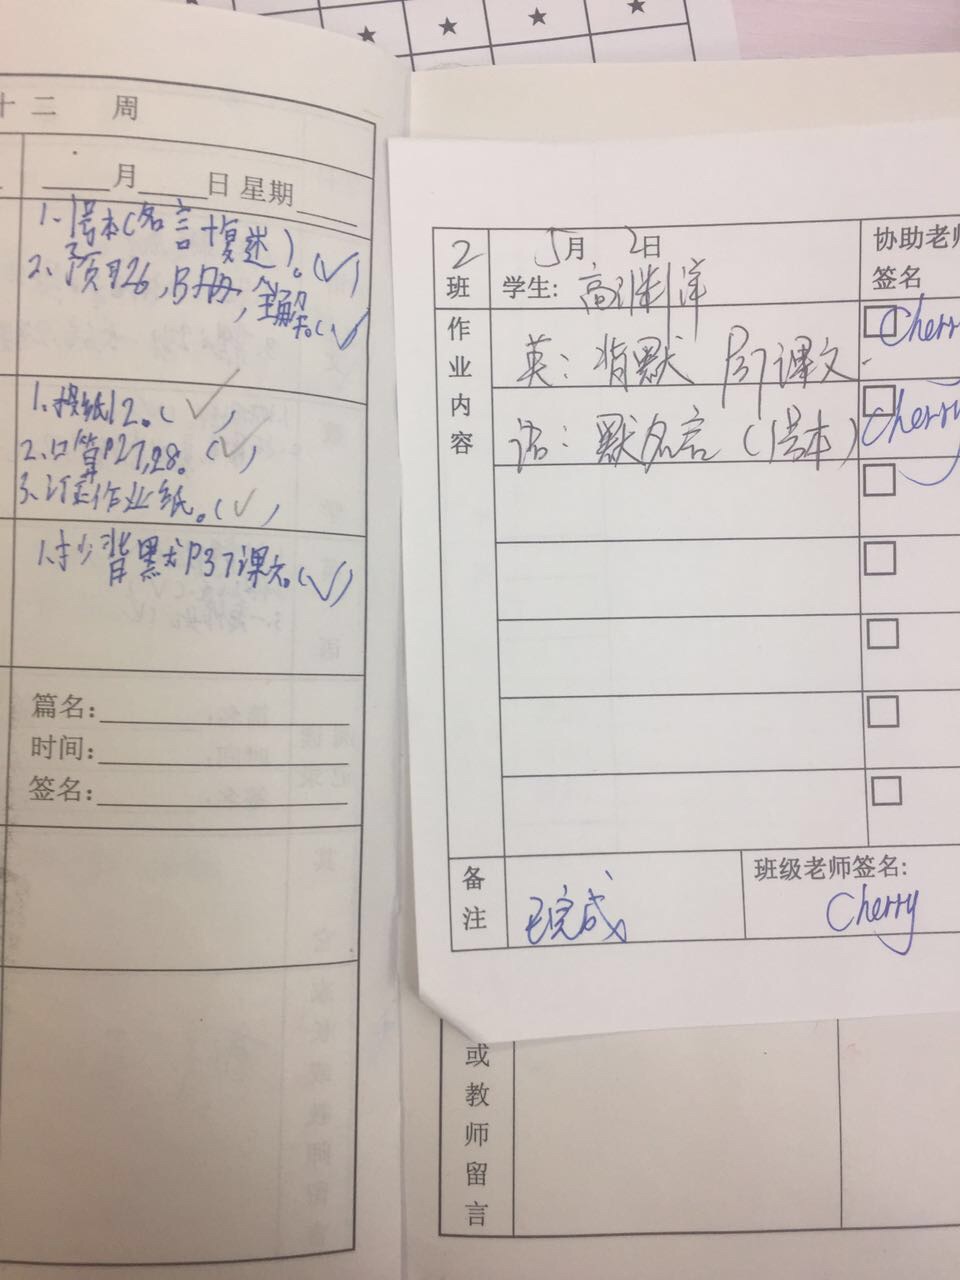 十二 周
月 日 星期
1、背本(名言+复述)。(✓)
2、预习26,B册,全解。(✓)
1、提纸12。(✓)
2、口算P27,28。(✓)
3、订正作业纸。(✓)
1、抄背默P37课文。(✓)
篇名:
时间:
签名:
2班
5月 2日
学生:高
协助老师签名
作业内容
英:背默 P37课文
Cherry
语:默名言(背本)
Cherry
备注
已完成
班级老师签名:
Cherry
或教师留言